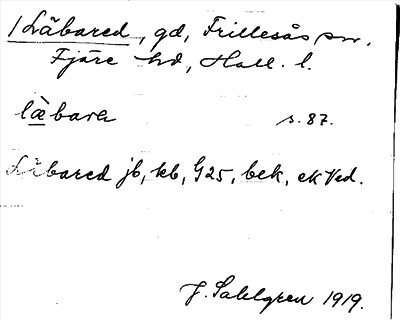 / Läbared, gd, Frillesås sn,
Fjäre hd, Hall. l.
lä̀bara s. 87.
Läbared jb, kb, G25, bek, ek Ved.
J. Sahlgren 1919.